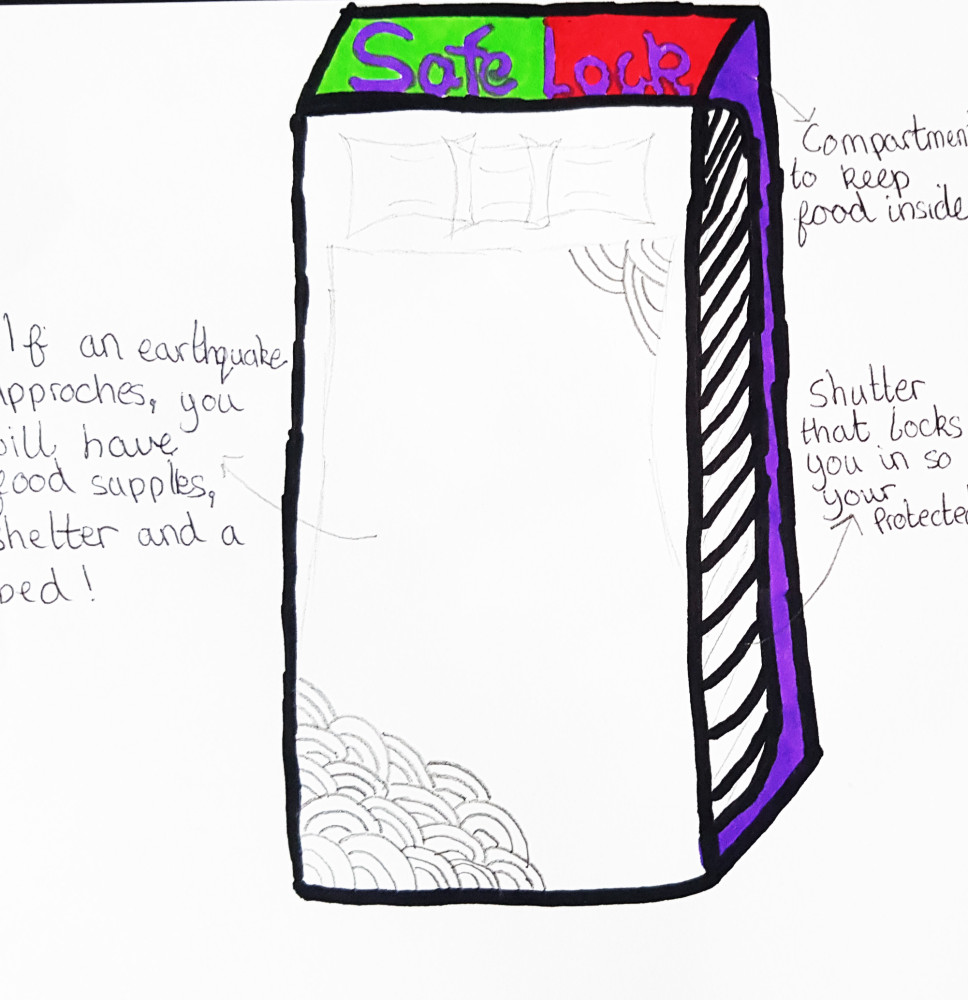 Safe Lock
Compartmen
to keep
food inside
If an earthquake
approches, you
will have
food supples,
shelter and a
bed!
Shutter
that locks
you in so
your
Protected